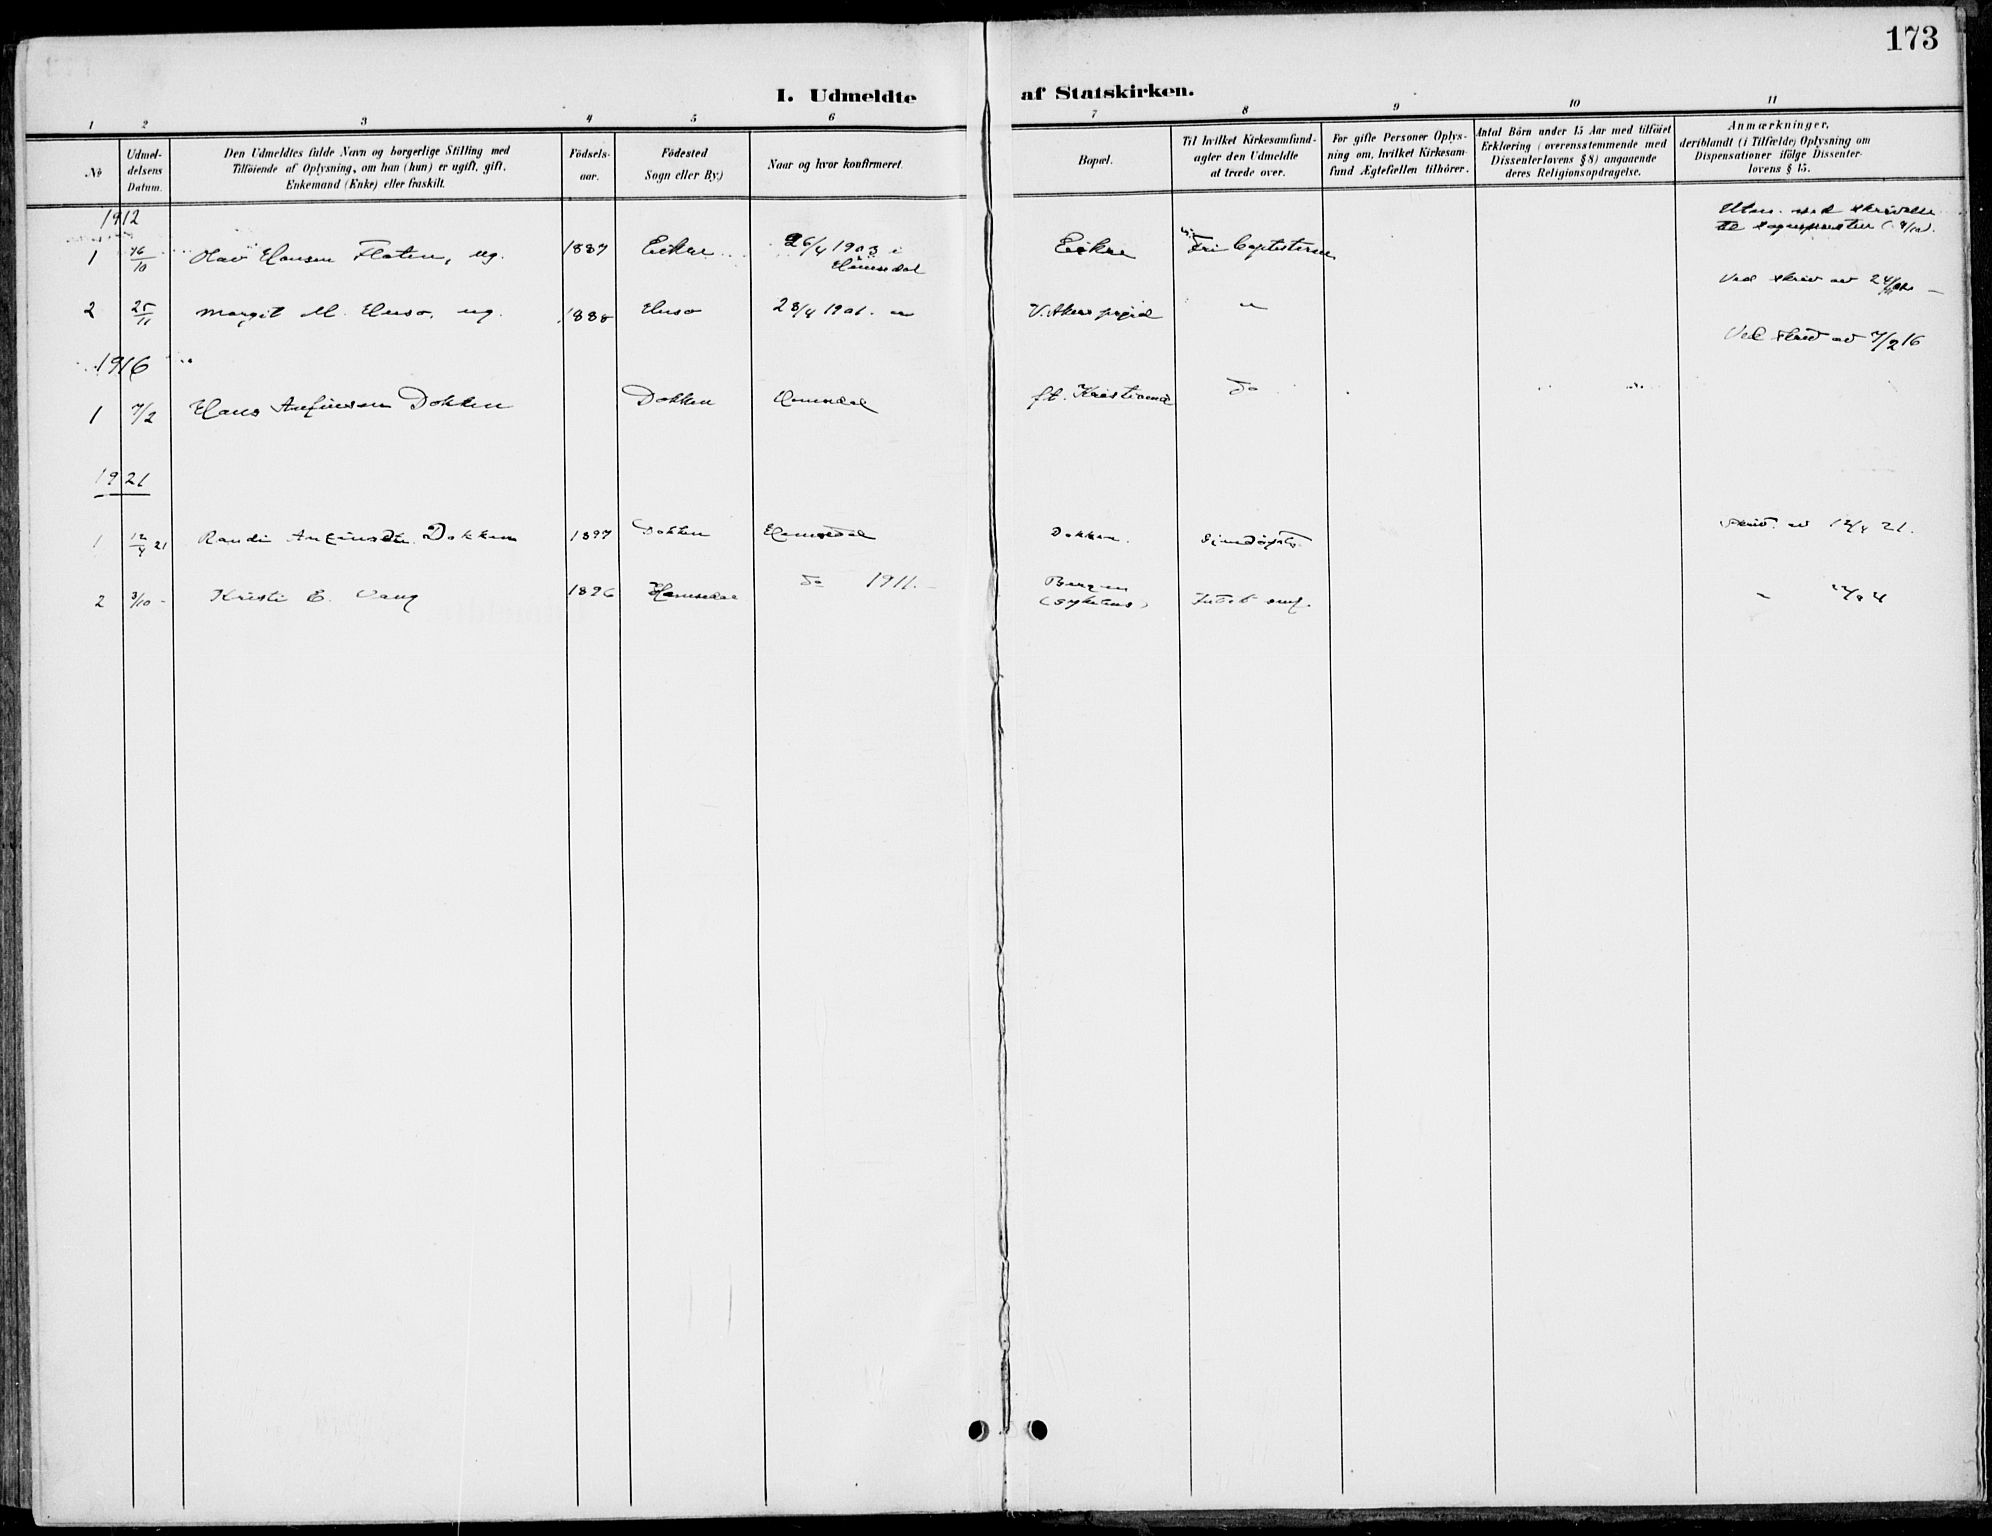 173
I. Udmeldte af Statskirken.
1 2 3 4 5 6 7 8 9 10 11
No
Udmeldelsens Datum.
Den Udmeldtes fulde Navn og borgerlige Stilling med
Tilföiende af Oplysning, om han (hun) er ugift, gift,
Enkemand (Enke) eller fraskilt.
Födselsaar.
Födested
Sogn eller By.)
Naar og hvor konfirmeret.
Bopæl.
Til hvilket Kirkesamfund
agter den Udmeldte
at træde over.
For gifte Personer Oplys-
ning om, hvilket Kirkesam-
fund Ægtefællen tilhörer.
Antal Börn under 15 Aar med tilföiet
Erklæring (overensstemmende med
Dissenterlovens § 8) angaaende
deres Religionsopdragelse.
Anmærkninger,
deriblandt (i Tilfælde) Oplysning om
Dispensationer ifölge Dissenter-
lovens § 15.
1912
1 16/10 Olav Hansen Flaten, ug. 1887 Eikre 26/4 1903 i Hemsedal Eikre Fri baptisterne
2 25/11 Margit M. Huso, ug. 1888 Huso 28/4 1901 V. Aker " Ved skriv av 24/11
1916
1 7/2 Hans Anfinsen Dokken Dokken Hemsedal ft. Kristiania do Ved skriv av 7/2 16
1921
1 12/4 21 Randi Anfinsdtr. Dokken 1897 Dokken Hemsedal Dokken. skriv. av 12/4 21.
2 3/10 Kristi E. Vang 1896 Hemsedal do 1911. Bergen (sykehus)